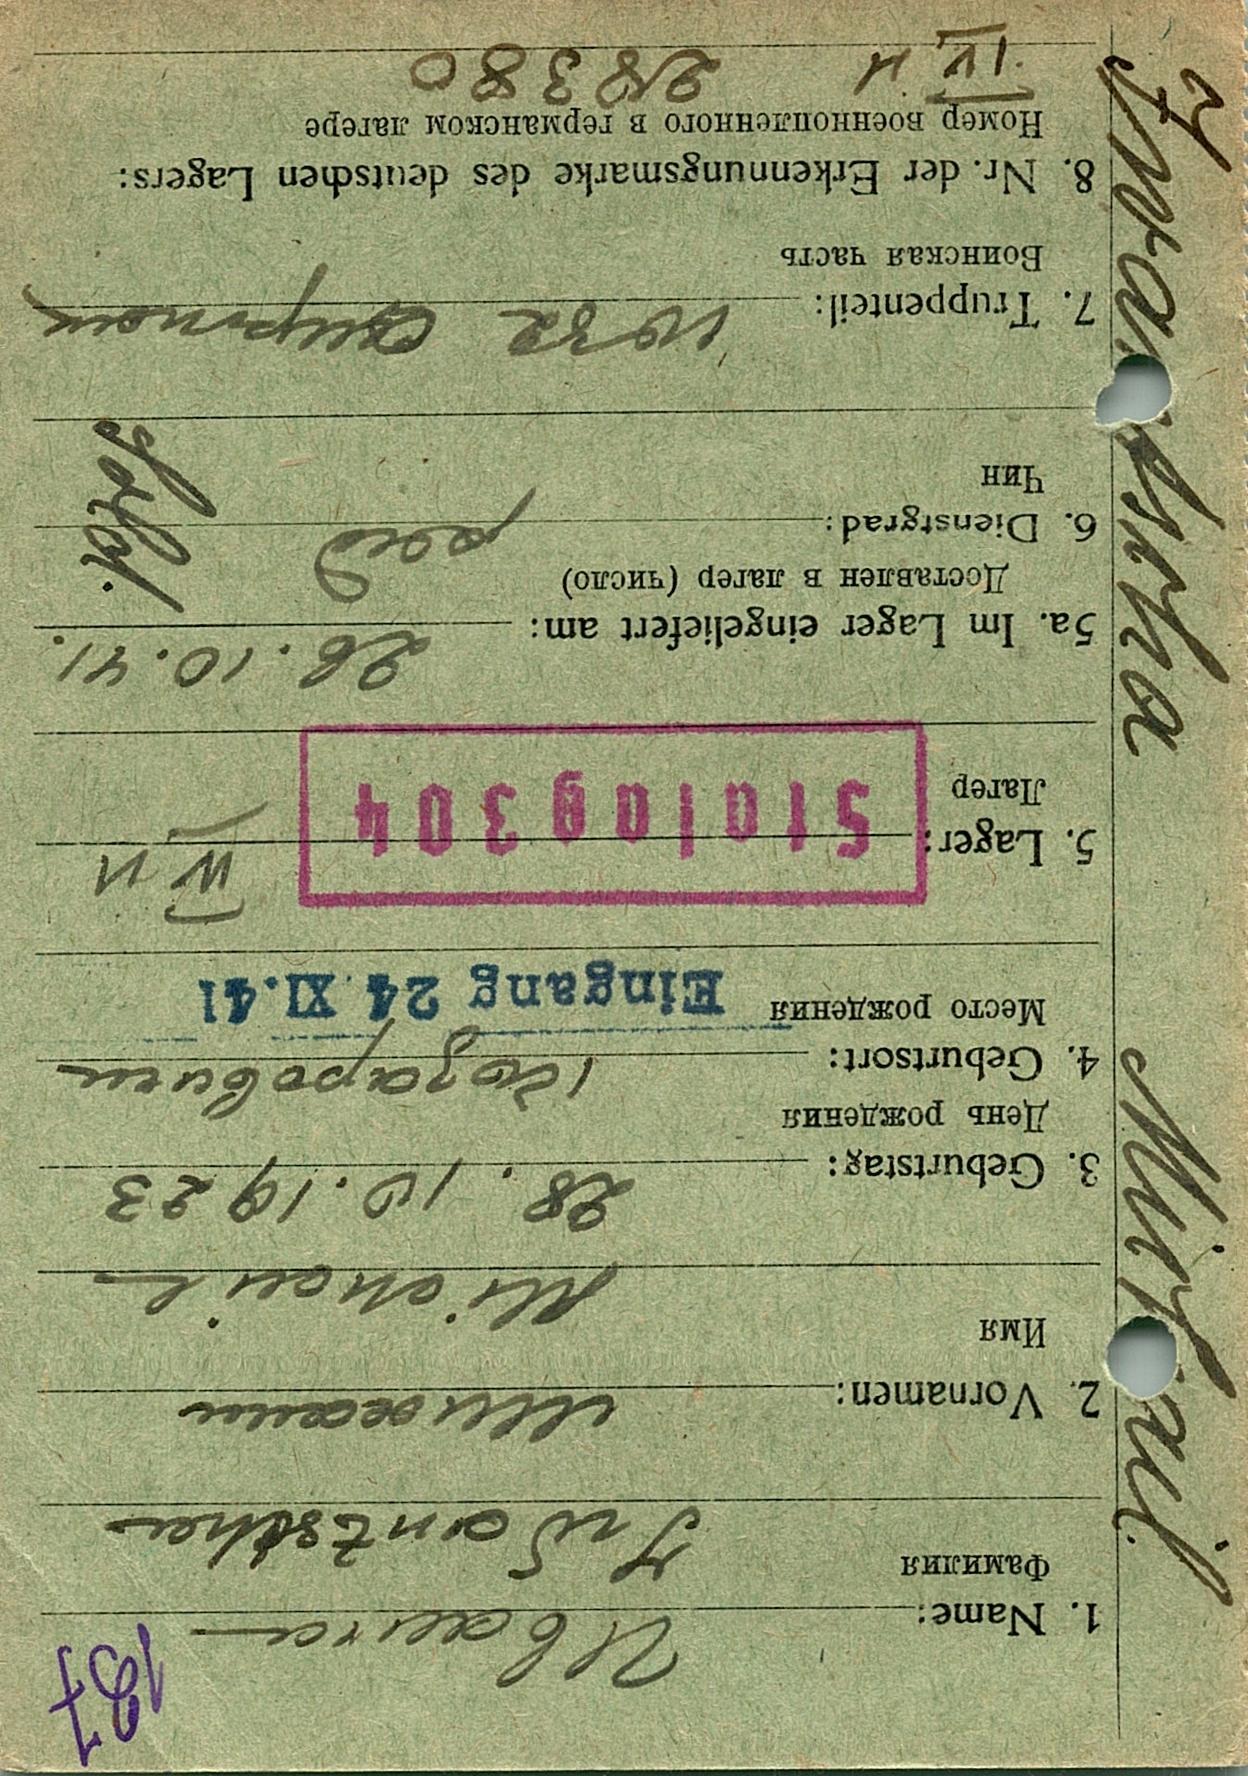 127
1. Name: Иванча
Фамилия Iwantscha
2. Vornamen: Михаил
Имя Michail
3. Geburtstag: 28.10.1923
День рождения
4. Geburtsort:
Место рождения Eingang 24.XI.41
5. Lager: Stalag 304 IV H
Лагерь
5a. Im Lager eingeliefert am: 26.10.41.
Доставлен в лагер (число)
6. Dienstgrad: ряд Sold.
Чин
7. Truppenteil: 1032
Воинская часть
8. Nr. der Erkennungsmarke des deutschen Lagers:
Номер военнопленного в германском лагере
IV H 28380
Michail